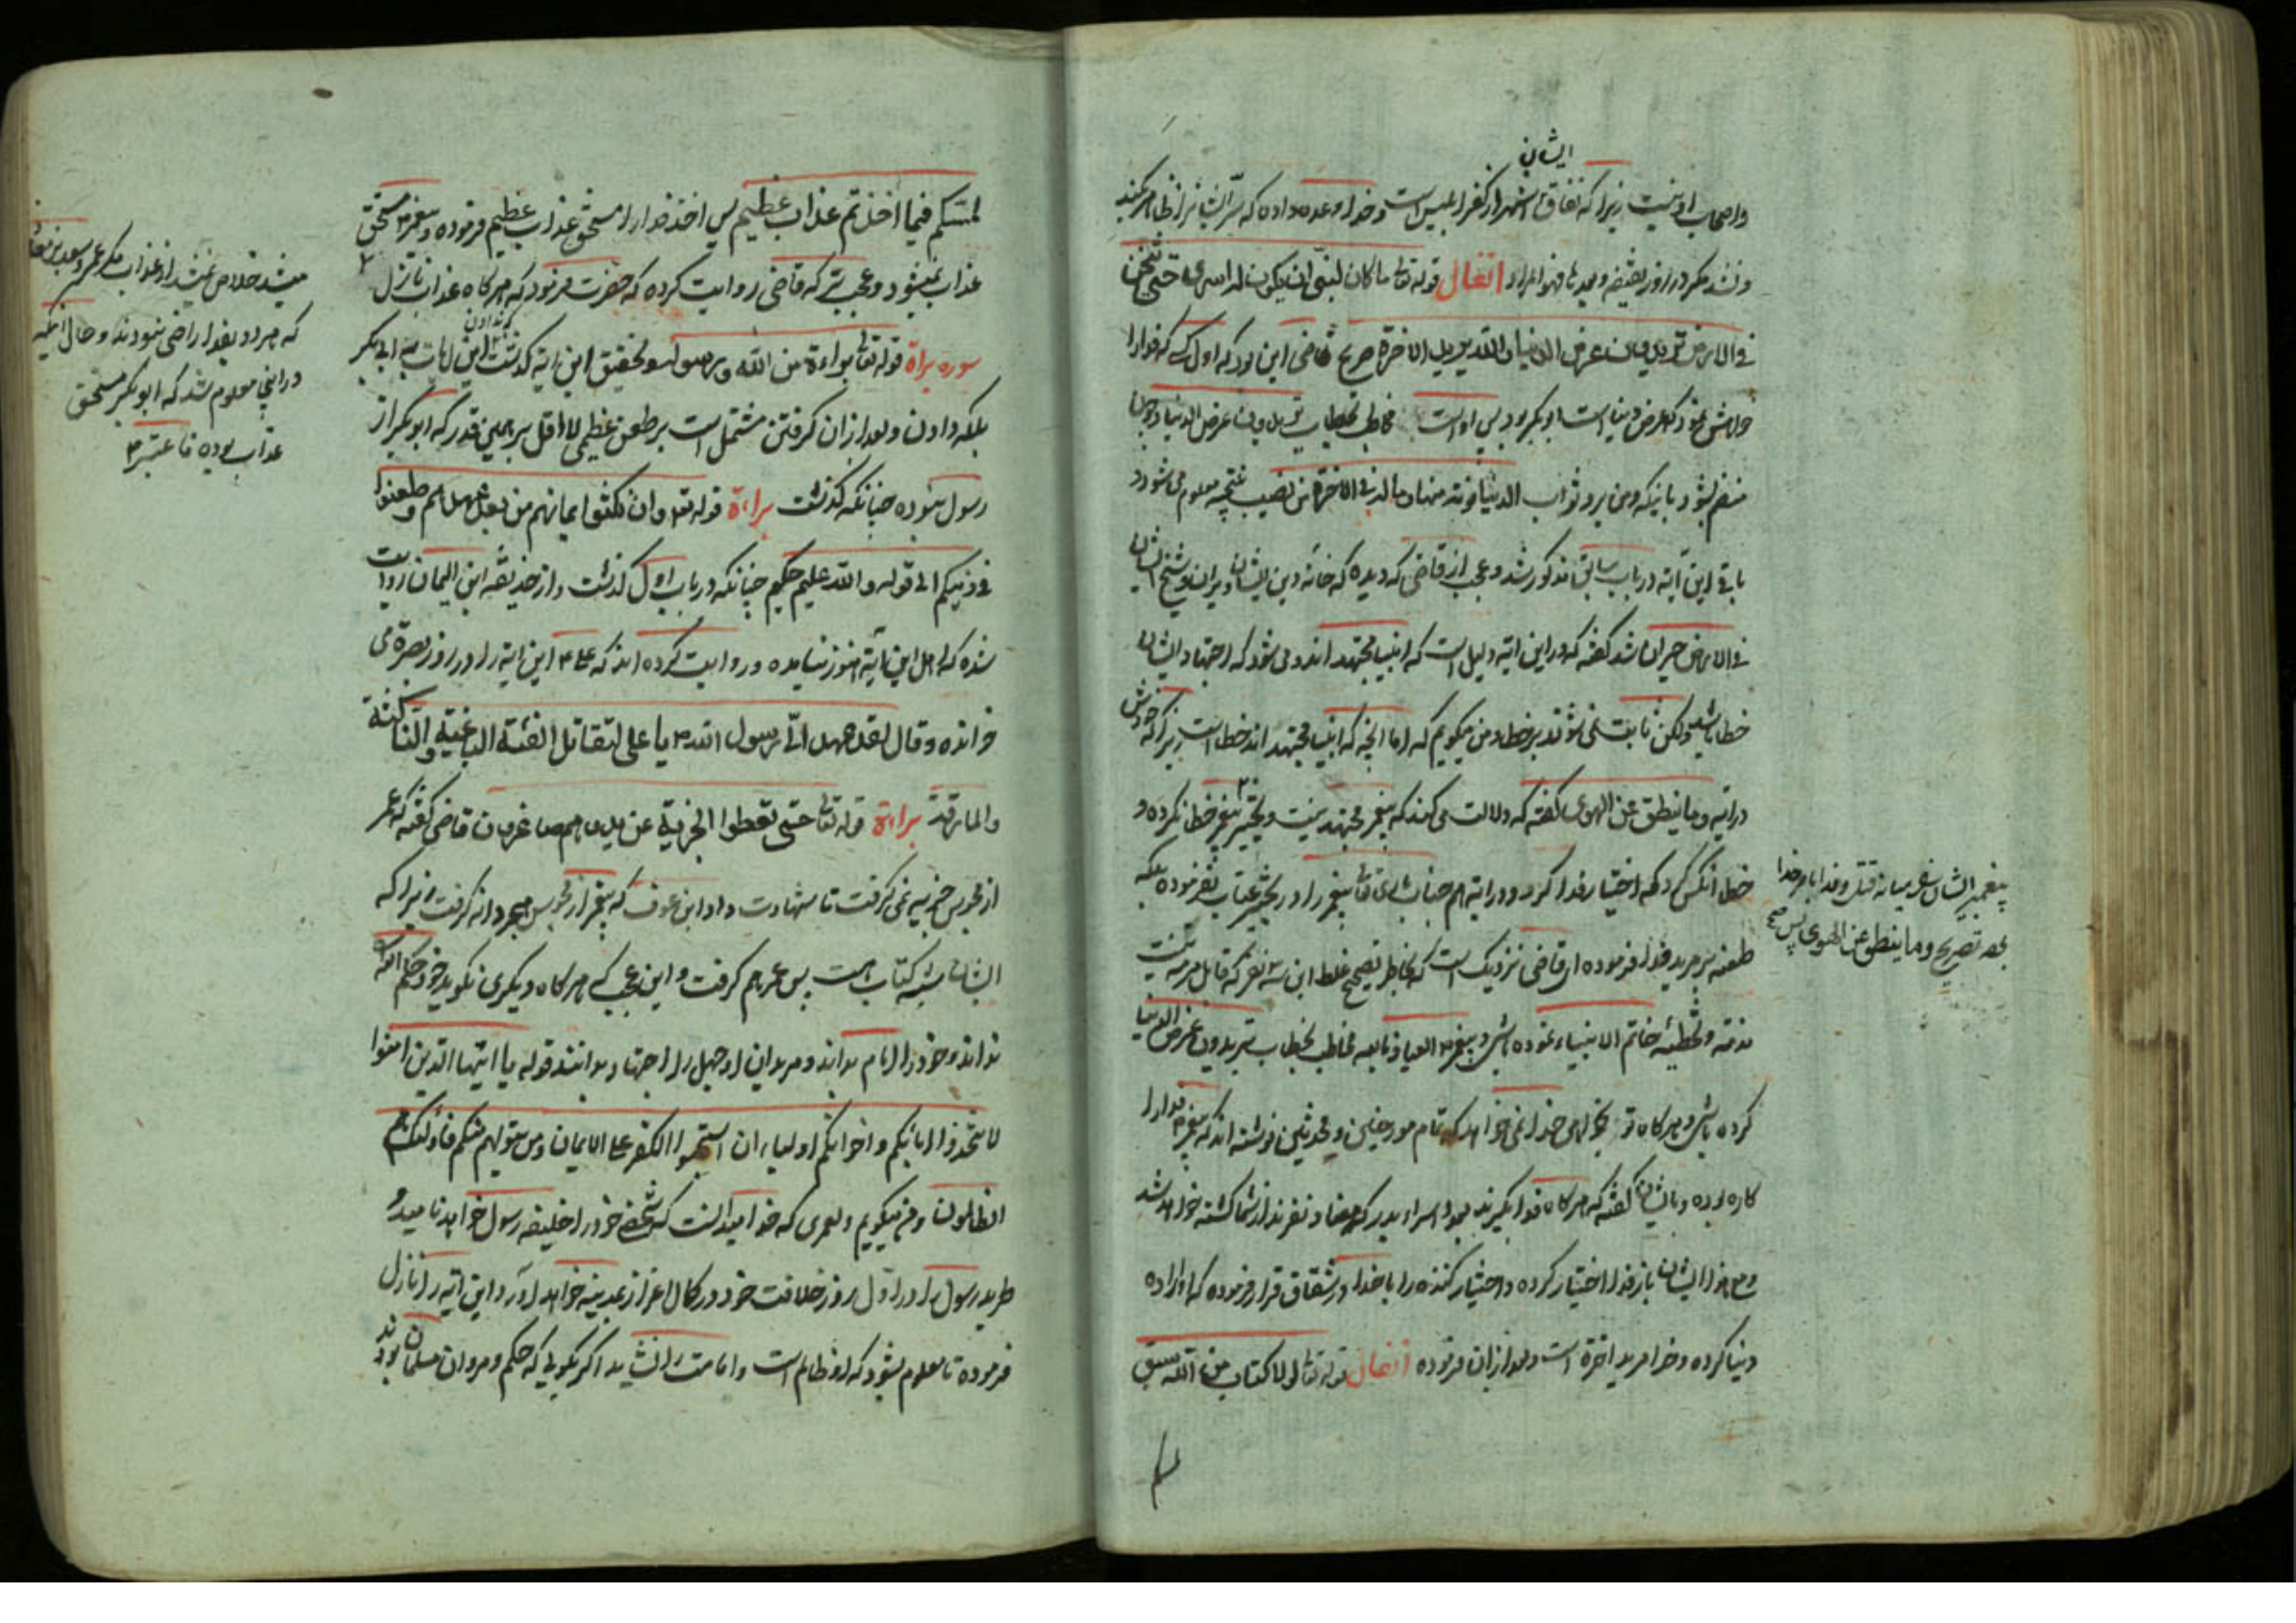 ایشان
واصحاب او نیست زیرا که نفاق اشهر از کفر ابلیس است وخدا وعده داده که سرّ ایشانرا ظاهر کند
ونشد مکر در روز انفال قوله تعا ما کان لنبیّ ان یکون له اسری حتی یثخن
فی الارض تریدون عرض الدنیا والله یرید الاخرة صریح قاضی این بود که اول کسی که فدا را
خواهش نمود که عرض دنیاست ابو بکر بود پس او است مخاطب بخطاب تریدون عرض الدنیا وچون
منضم بشود باینکه ومن یرد ثواب الدنیا نؤته منها وما له فی الاخرة من نصیب نتیجه معلوم می شود و
باقی این آیه در باب سابق مذکور شد وعجب از قاضی که دیده که خانه دین ایشان ویران
فی الارض حیران شد گفته که در این ایه دلیل است که انبیا مجتهد اند ومی شود که اجتهاد ایشان
خطا باشد ولکن ثابت نمی شوند بر خطا ومن میکویم که اما انچه که انبیا مجتهد اند خطا است زیرا که خودش
در ایه وما ینطق عن الهوی گفته که دلالت می کند که پیغمبر مجتهد نیست و پیغمبر خطا نکرده و
خطا انکس کرد که اختیار فدا کرد ودر ایه هم جناب تعا پیغمبر را در عتاب نفرموده بلکه
طعنه بر مرید فدا فرموده ای قاضی نزدیک است که بخاطر تصحیح غلط این سه نفر که قابل مرتبه نیست
مذمة وتخطئه خاتم الانبیاء نموده باشی وپیغمبر العیاذ بالله مخاطب بخطاب تریدون عرض الدنیا
کرده باشی وهرکاه تو بخواهی خدا نمی خواهد که تمام مورخین ومحدثین نوشته اند که پیغمبر فدا را
کاره بوده وبایشان گفته که هرکاه فدا بکیرند اسراء بدر که هفتاد نفرند از شما کشته خواهد شد
ایشان باز فدا اختیار کرده واختیار کننده را با خدا در شقاق قرار فرموده که او اراده
دنیا کرده وخدا مرید اخرة است وبعد از ان فرموده انفال قوله تعا لولا کتاب من الله سبق
لمسکم
پیغمبر ایشان میانه قتل وفدا بامر خدا
بعد تصریح وما ینطق عن الهوی پس
لمسّکم فیما اخذتم عذاب عظیم پس اخذ فدا را مستحق عذاب عظیم فرموده وپیغمبر مستحق
عذاب نمیشود وعجب تر که قاضی روایت کرده که حضرت فرمود که هرکاه عذاب نازل
سوره براة قوله تعا براءة من الله ورسوله وتحقیق این ایه کذشت این ایات به ابی بکر
بلکه دادن وبعد از ان کرفتن مشتمل است بر طعن عظیمی لا اقل بر همین قدر که ابو بکر از
رسول نبوده چنانکه کذشت براءة قوله تعا وان نکثوا ایمانهم من بعد عهدهم وطعنوا
فی دینکم الی قوله والله علیم حکیم چنانکه در باب اول کذشت واز حذیفه ابن الیمان روایت
شده که اهل این آیه هنوز نیامده وروایت کرده اند که علی این ایه را در روز بصره می
خوانده وقال لقد عهد الیّ رسول الله یا علی لتقاتل الفئة الباغیة والناکثة
والمارقة براءة قوله تعا حتی یعطوا الجزیة عن ید وهم صاغرون قاضی گفته که عمر
از مجوس جزیه نمی کرفت تا شهادت داد ابن عوف که پیغمبر از مجوس هجر کرفت زیرا که
ایشان شبه کتاب است پس عمر هم کرفت واین عجب که هرکاه دیکری نکوید خود حکم الله
نداند وخود را امام بداند ومریدان او جهل را اجتهاد بدانند قوله یا ایّها الذین امنوا
لا تتخذوا ابائکم واخوانکم اولیاء ان استحبوا الکفر علی الایمان ومن یتولهم منکم فاولئک هم
الظالمون ومن میکویم ولعمری که خدا میدانست که شخصی خود را خلیفه رسول خواهد نامید و
طرید رسول را در اول روز خلافت خود در کمال اعزاز بمدینه خواهد آورد واین ایه را نازل
فرموده تا معلوم بشود که او ظالم است وامامت را نشاید اکر بکوئی که حکم ومروان مسلمان بودند
میشد خلاص نمیشد از عذاب مکر عمر وسعد بن معاذ
که هر دو بفدا راضی نبودند وحال انکه
در اینجا معلوم شد که ابو بکر مستحق
عذاب بوده فاعتبر